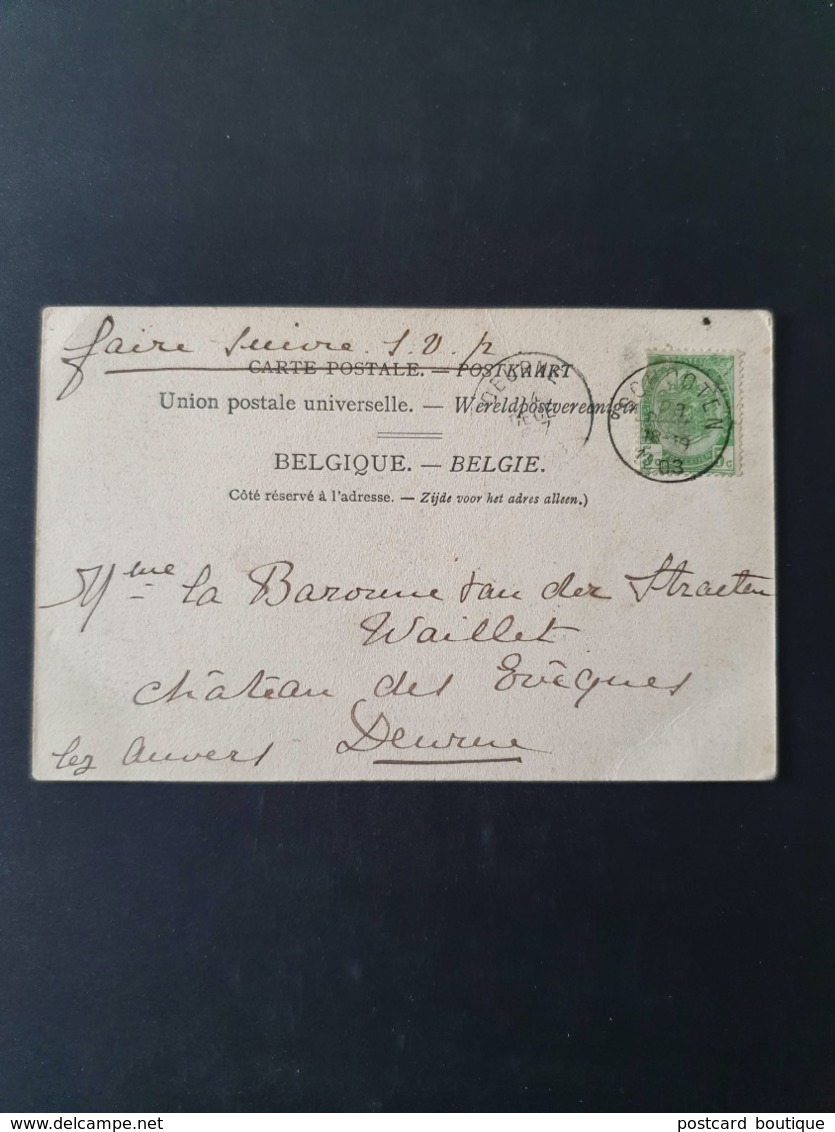 faire suivre. S. V. p
CARTE POSTALE. — POSTKAART
Union postale universelle. — Wereldpostvereeniging
BELGIQUE. — BELGIE.
Côté réservé à l'adresse. — Zijde voor het adres alleen.)
DEURNE
SCHOOTEN
18-19
1903
Mme la Baronne van der Straeten
Waillet
château des Evêques
lez Anvers Deurne
www.delcampe.net
postcard boutique